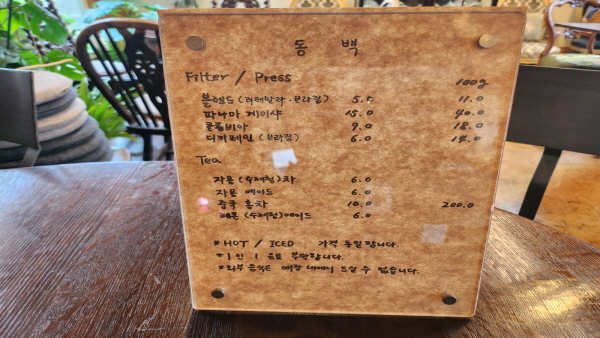 동 백
Filter / Press 100g
블렌드 (과테말라 · 브라질) 5.5 11.0
파나마 게이샤 15.0 40.0
콜롬비아 9.0 18.0
디카페인 (브라질) 6.0 14.0
Tea
자몽 (수제청) 차 6.0
자몽 에이드 6.0
중국 홍차 10.0 200.0
레몬 (수제청) 에이드 6.0
* HOT / ICED 가격 동일합니다.
* 1 인 1 음료 부탁합니다.
* 외부 음식은 매장 내에서 드실 수 없습니다.